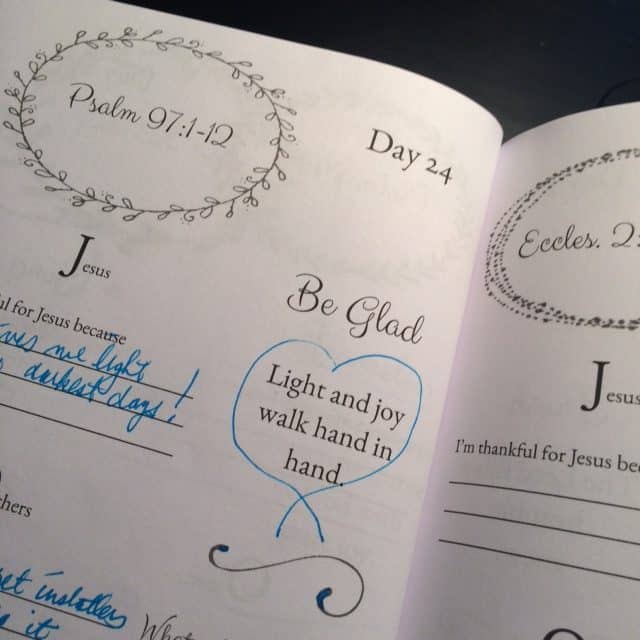 Psalm 97:1-12
Day 24
Jesus
ful for Jesus because
gives me light
darkest days!
Be Glad
Light and joy
walk hand in
hand.
thers
it
Eccles. 2:
Jesus
I'm thankful for Jesus bec